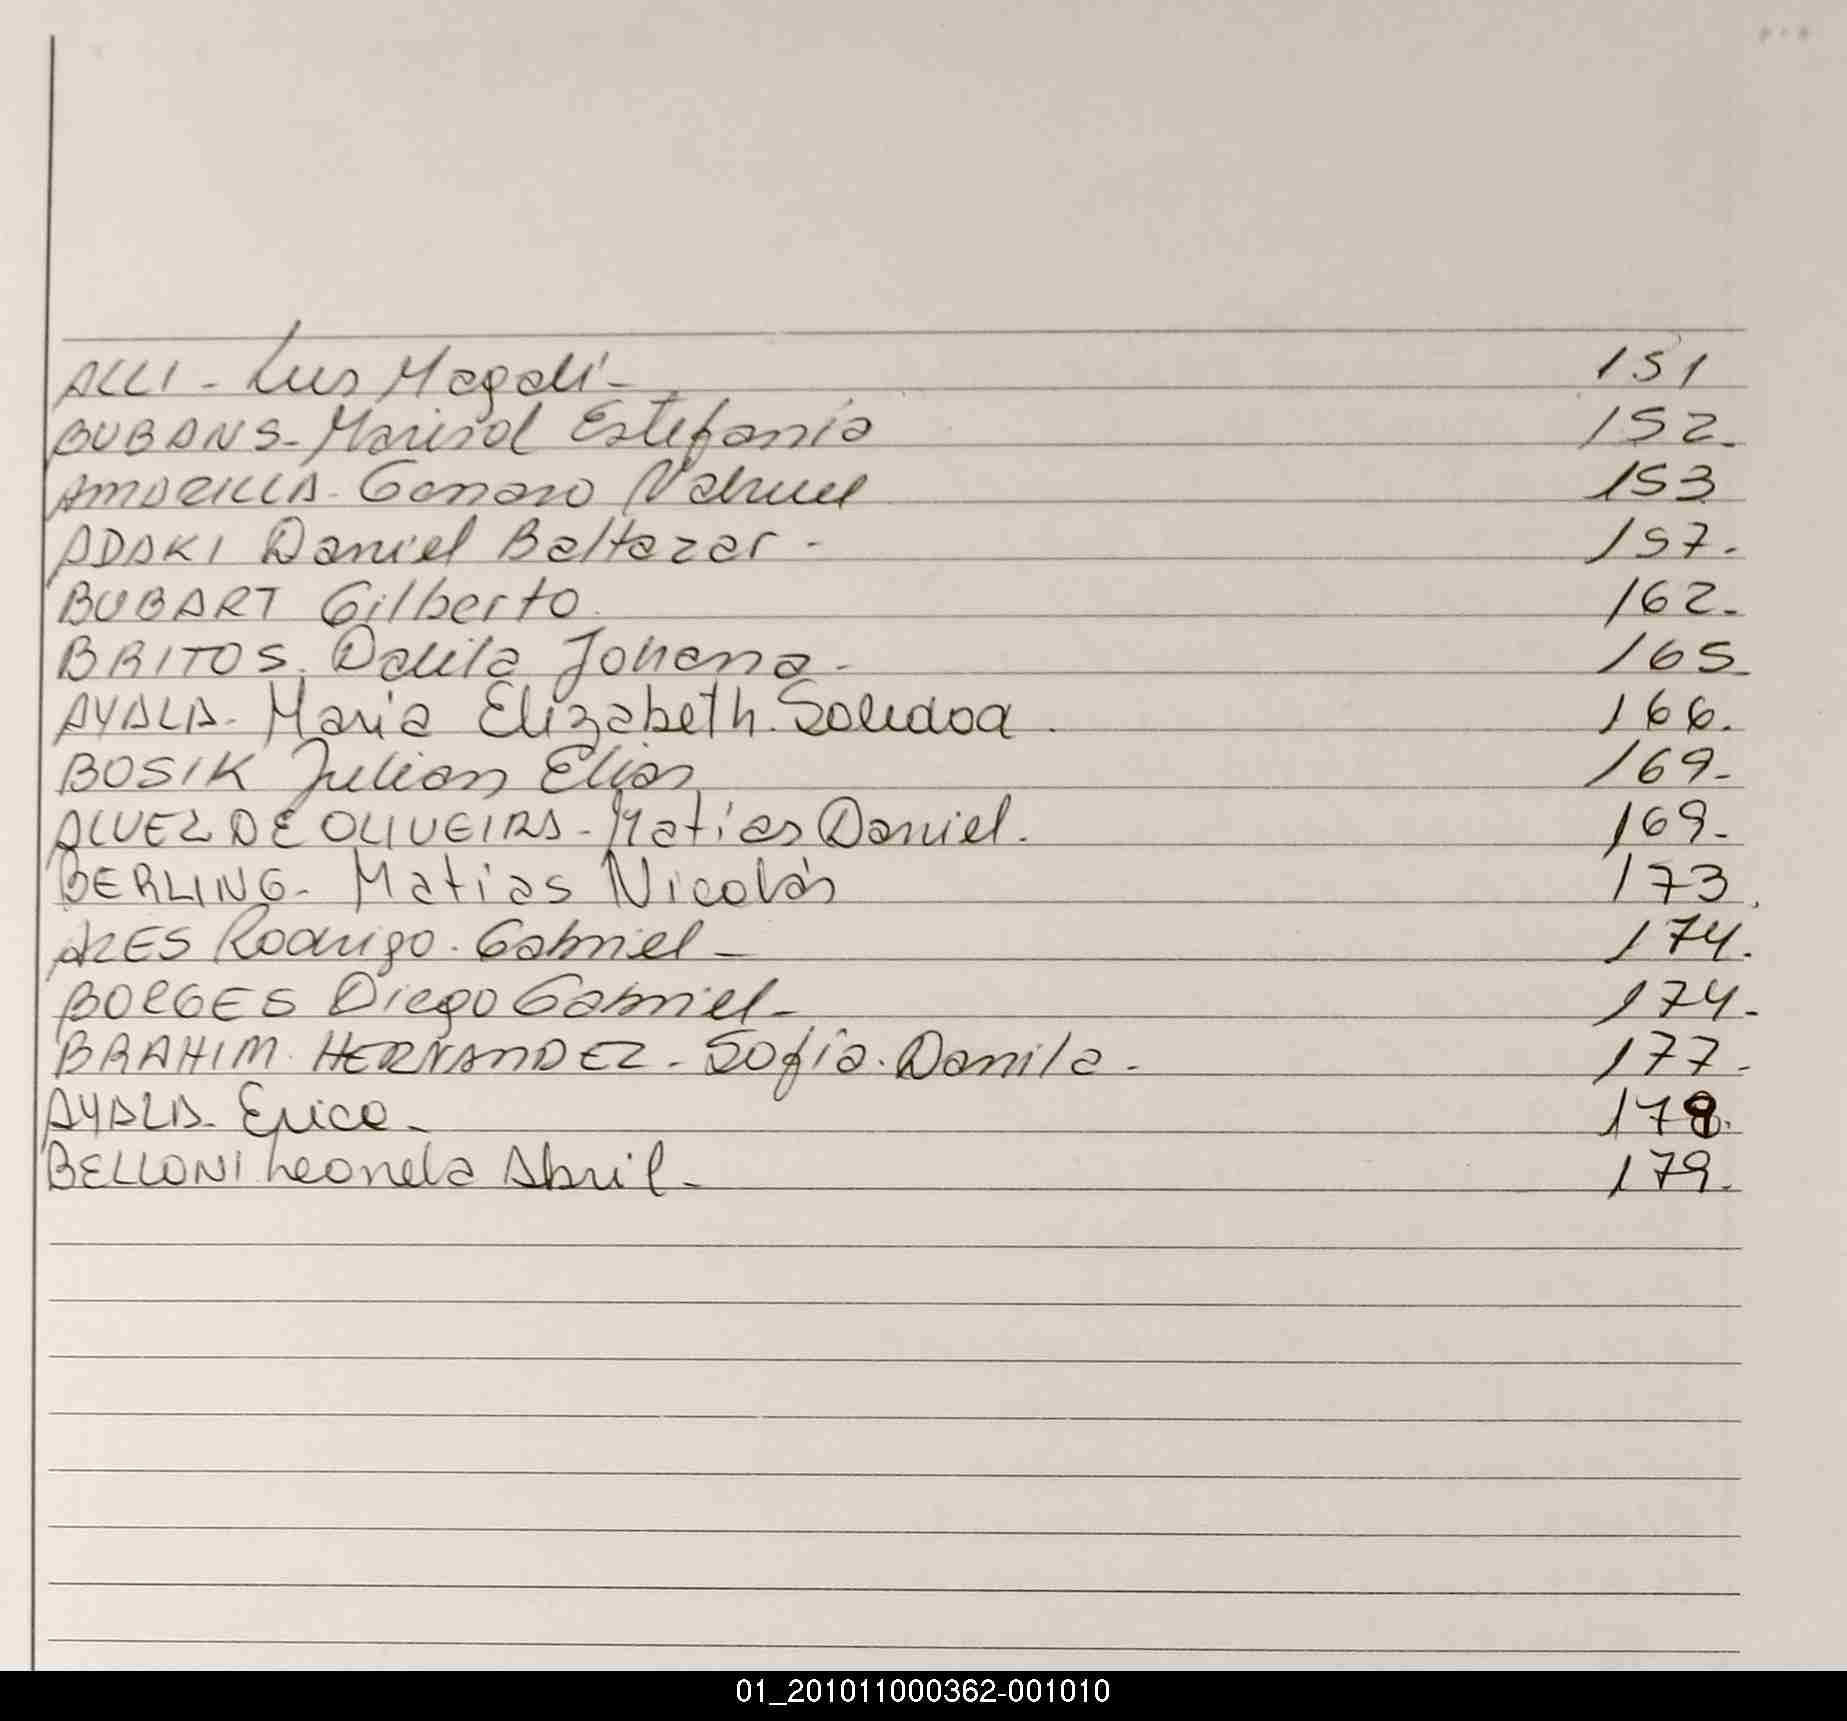 ALLI - Luis Magalí - 151
BUBANS - Marisol Estefanía 152.
AMARILLA - Genaro Nahuel 153
ADAKI Daniel Baltazar - 157.
BUBART Gilberto. 162.
BRITOS. Dalila Johana - 165
AYALA - Maria Elizabeth. Soledad. 166.
BOSIK Julian Elias 169-
ALVEZ DE OLIVEIRA - Matías Daniel. 169-
BERLING - Matias Nicolás 173.
ARES Rodrigo. Gabriel - 174.
BORGES Diego Gabriel - 174.
BRAHIM. HERNANDEZ - Sofía. Danila - 177-
AYALA - Erica - 178.
BELLONI Leonela Abril - 179.
01_201011000362-001010